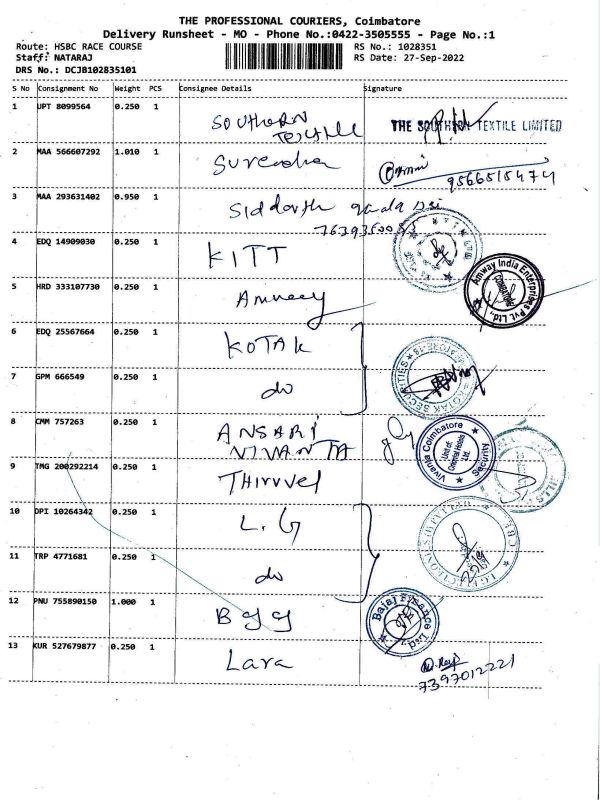 THE PROFESSIONAL COURIERS, Coimbatore
Delivery Runsheet - MO - Phone No.:0422-3505555 - Page No.:1
Route: HSBC RACE COURSE
RS No.: 1028351
Staff: NATARAJ
RS Date: 27-Sep-2022
DRS No.: DCJB102835101
S No Consignment No Weight PCS Consignee Details Signature
1 UPT 8099564 0.250 1 SOUTHERN TEXTILE THE SOUTHERN TEXTILE LIMITED
2 MAA 566607292 1.010 1 Surendra
9566515474
3 MAA 293631402 0.950 1 Siddarth
4 EDQ 14909030 0.250 1 KITT
5 HRD 333107730 0.250 1 Amway Amway India Enterprises Pvt Ltd.
6 EDQ 25567664 0.250 1 KOTAK
7 GPM 666549 0.250 1 do KOTAK SECURITIES
8 CMM 757263 0.250 1 ANSARI
VIVANTA Vivanta Coimbatore Unit of Oriental Hotels Ltd. Security
9 TMG 200292214 0.250 1 Thirvvel
10 DPI 10264342 0.250 1 L.G
11 TRP 4771681 0.250 1 do
12 PNU 755890150 1.000 1 Bajaj Finance Ltd.
13 KUR 527679877 0.250 1 Lara
7397012221